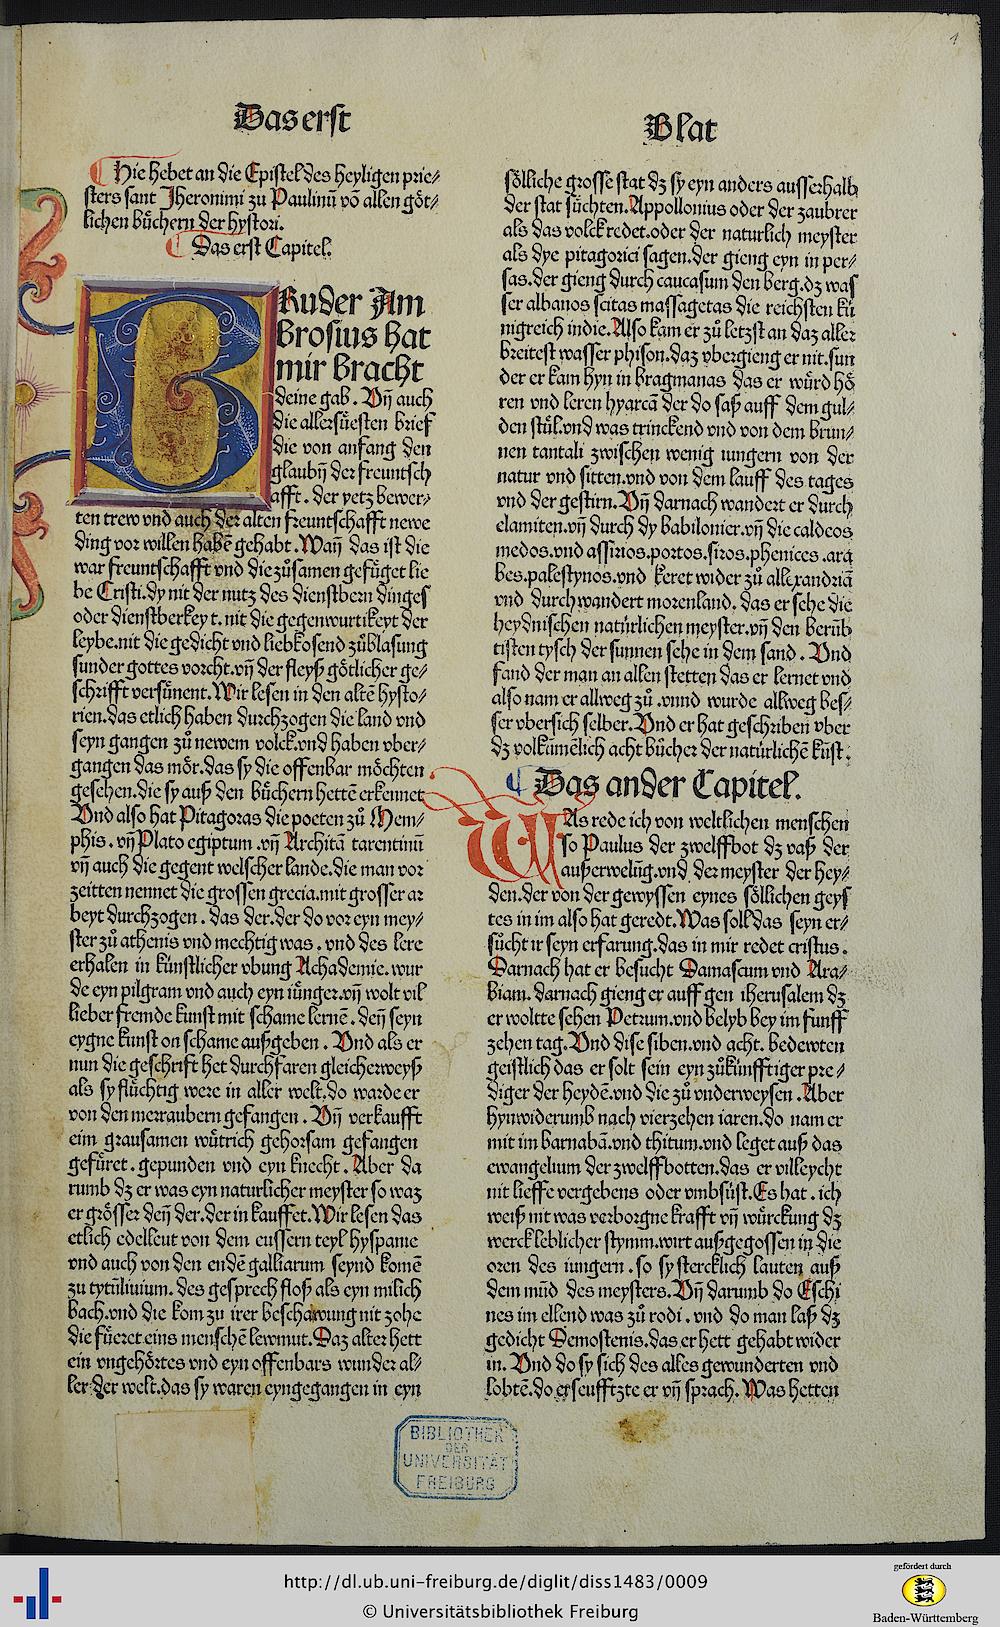 Das erst
Blat
1
Hie hebet an die Epistel des heyligen prie⸗
sters sant Jheronimi zu Paulinū vō allen göt⸗
lichen büchern der hystori.
Das erst Capitel.
BRuder Am
brosius hat
mir bracht
deine gab. Vñ auch
die allersüesten brief
die von anfang den
glaubñ der freuntsch
afft. der yetz bewer⸗
ten trew vnd auch der alten freuntschafft newe
ding vor willen habē gehabt. Wañ das ist die
war freuntschafft vnd die zůsamen gefüget lie
be Cristi. dy nit der nutz des dienstbern dinges
oder dienstberkeyt. nit die gegenwurtikeyt der
leybe. nit die gedicht vnd liebkosend zůblasung
sunder gottes vorcht. vñ der fleyß götlicher ge⸗
schrifft versünent. Wir lesen in den altē hysto⸗
rien. das etlich haben durchzogen die land vnd
seyn gangen zů newem volck. vnd haben vber⸗
gangen das mör. das sy die offenbar möchten
gesehen. die sy auß den büchern hettē erkennet
Vnd also hat Pitagoras die poeten zů Mem⸗
phis. vñ Plato egiptum. vñ Architā tarentinū
vñ auch die gegent welscher lande. die man vor
zeitten nennet die grossen grecia. mit grosser ar
beyt durchzogen. das der. der do vor eyn mey⸗
ster zů athenis vnd mechtig was. vnd des lere
erhalen in künstlicher vbung Achademie. wur
de eyn pilgram vnd auch eyn iünger. vñ wolt vil
lieber fremde kunst mit schame lernē. deñ seyn
eygne kunst on schame außgeben. Vnd als er
nun die geschrift het durchfaren gleicherweyß
als sy flüchtig were in aller welt. do warde er
von den merraubern gefangen. Vñ verkaufft
eim grausamen wütrich gehorsam gefangen
gefüret. gepunden vnd eyn knecht. Aber da
rumb dz er was eyn naturlicher meyster so waz
er grösser deñ der. der in kauffet. Wir lesen das
etlich edelleut von dem eussern teyl hyspanie
vnd auch von den endē galliarum seynd komē
zu tytūliuium. des gesprech floß als eyn milich
bach. vnd die kom zu irer beschawung nit zohe
die füeret eins menschē lewmut. Daz alter hett
ein vngehörtes vnd eyn offenbars wunder al⸗
ler der welt. das sy waren eyngegangen in eyn
sölliche grosse stat dz sy eyn anders ausserhalb
der stat süchten. Appollonius oder der zaubrer
als das volck redet. oder der naturlich meyster
als dye pitagorici sagen. der gieng eyn in per⸗
sas. der gieng durch caucasum den berg. dz was
ser albanos scitas massagetas die reichsten kü
nigreich indie. Also kam er zů letzst an daz aller
breitest wasser phison. daz vbergieng er nit. sun
der er kam hyn in bragmanas das er würd hö
ren vnd leren hyarcā der do saß auff dem gul⸗
den stůl. vnd was trinckend vnd von dem brun⸗
nen tantali zwischen wenig iungern von der
natur vnd sitten. vnd von dem lauff des tages
vnd der gestirn. Vñ darnach wandert er durch
elamiten. vñ durch dy babilonier. vñ die caldeos
medos. vnd assirios. portos. siros. phenices. ara
bes. palestynos. vnd keret wider zů allexandriā
vnd durchwandert morenland. das er sehe die
heydnischen natürlichen meyster. vñ den berüb
tisten tysch der sunnen sehe in dem sand. Vnd
fand der man an allen stetten das er lernet vnd
also nam er allweg zů. vnnd wurde allweg bes⸗
ser vbersich selber. Vnd er hat geschriben vber
dz volkümēlich acht bücher der natürlichē kūst.
Das ander Capitel.
WAs rede ich von weltlichen menschen
so Paulus der zwelffbot dz vaß der
außerwelūg. vnd der meyster der hey⸗
den. der von der gewyssen eynes söllichen geys
tes in im also hat geredt. Was soll das seyn er⸗
sůcht ir seyn erfarung. das in mir redet cristus.
Darnach hat er besucht Damascum vnd Ara⸗
biam. darnach gieng er auff gen iherusalem dz
er woltte sehen Petrum. vnd belyb bey im funff
zehen tag. Vnd dise siben. vnd acht. bedewten
geistlich das er solt sein eyn zůkünfftiger pre⸗
diger der heydē. vnd die zů vnderweysen. Aber
hynwiderumb nach vierzehen iaren. do nam er
mit im barnabā. vnd thitum. vnd leget auß das
ewangelium der zwelffbotten. das er villeycht
nit lieffe vergebens oder vmbsüst. Es hat. ich
weiß nit was verborgne krafft vñ würckung dz
werck leblicher stymm. wirt außgegossen in die
oren des iungern. so sy stercklich lauten auß
dem mūd des meysters. Vñ darumb do Eschi
nes im ellend was zů rodi. vnd do man laß dz
gedicht Demostenis. das er hett gehabt wider
in. Vnd do sy sich des alles gewunderten vnd
lobtē. do erseufftzte er vñ sprach. Was hetten
BIBLIOTHEK
DER
UNIVERSITÄT
FREIBURG
http://dl.ub.uni-freiburg.de/diglit/diss1483/0009
© Universitätsbibliothek Freiburg
gefördert durch
Baden-Württemberg